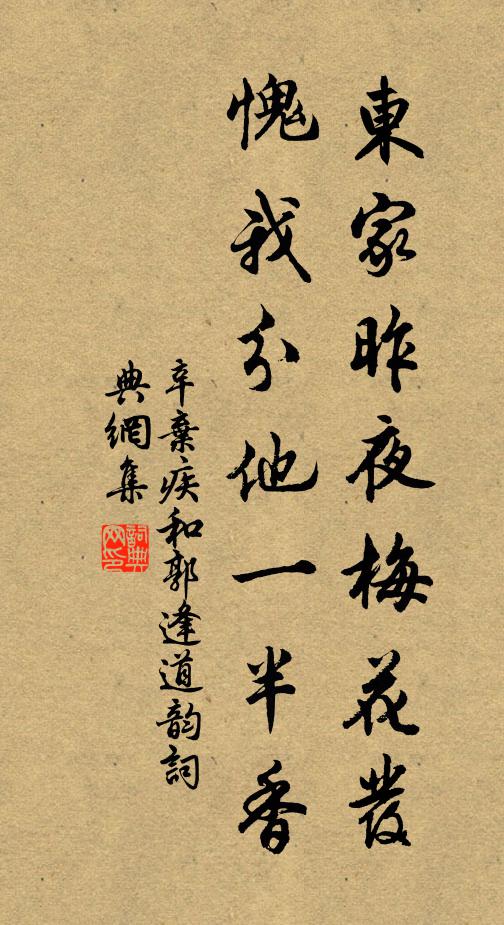 東家昨夜梅花發
愧我分他一半香
辛棄疾和郭逢道韵詞
典網集
詞典
网印